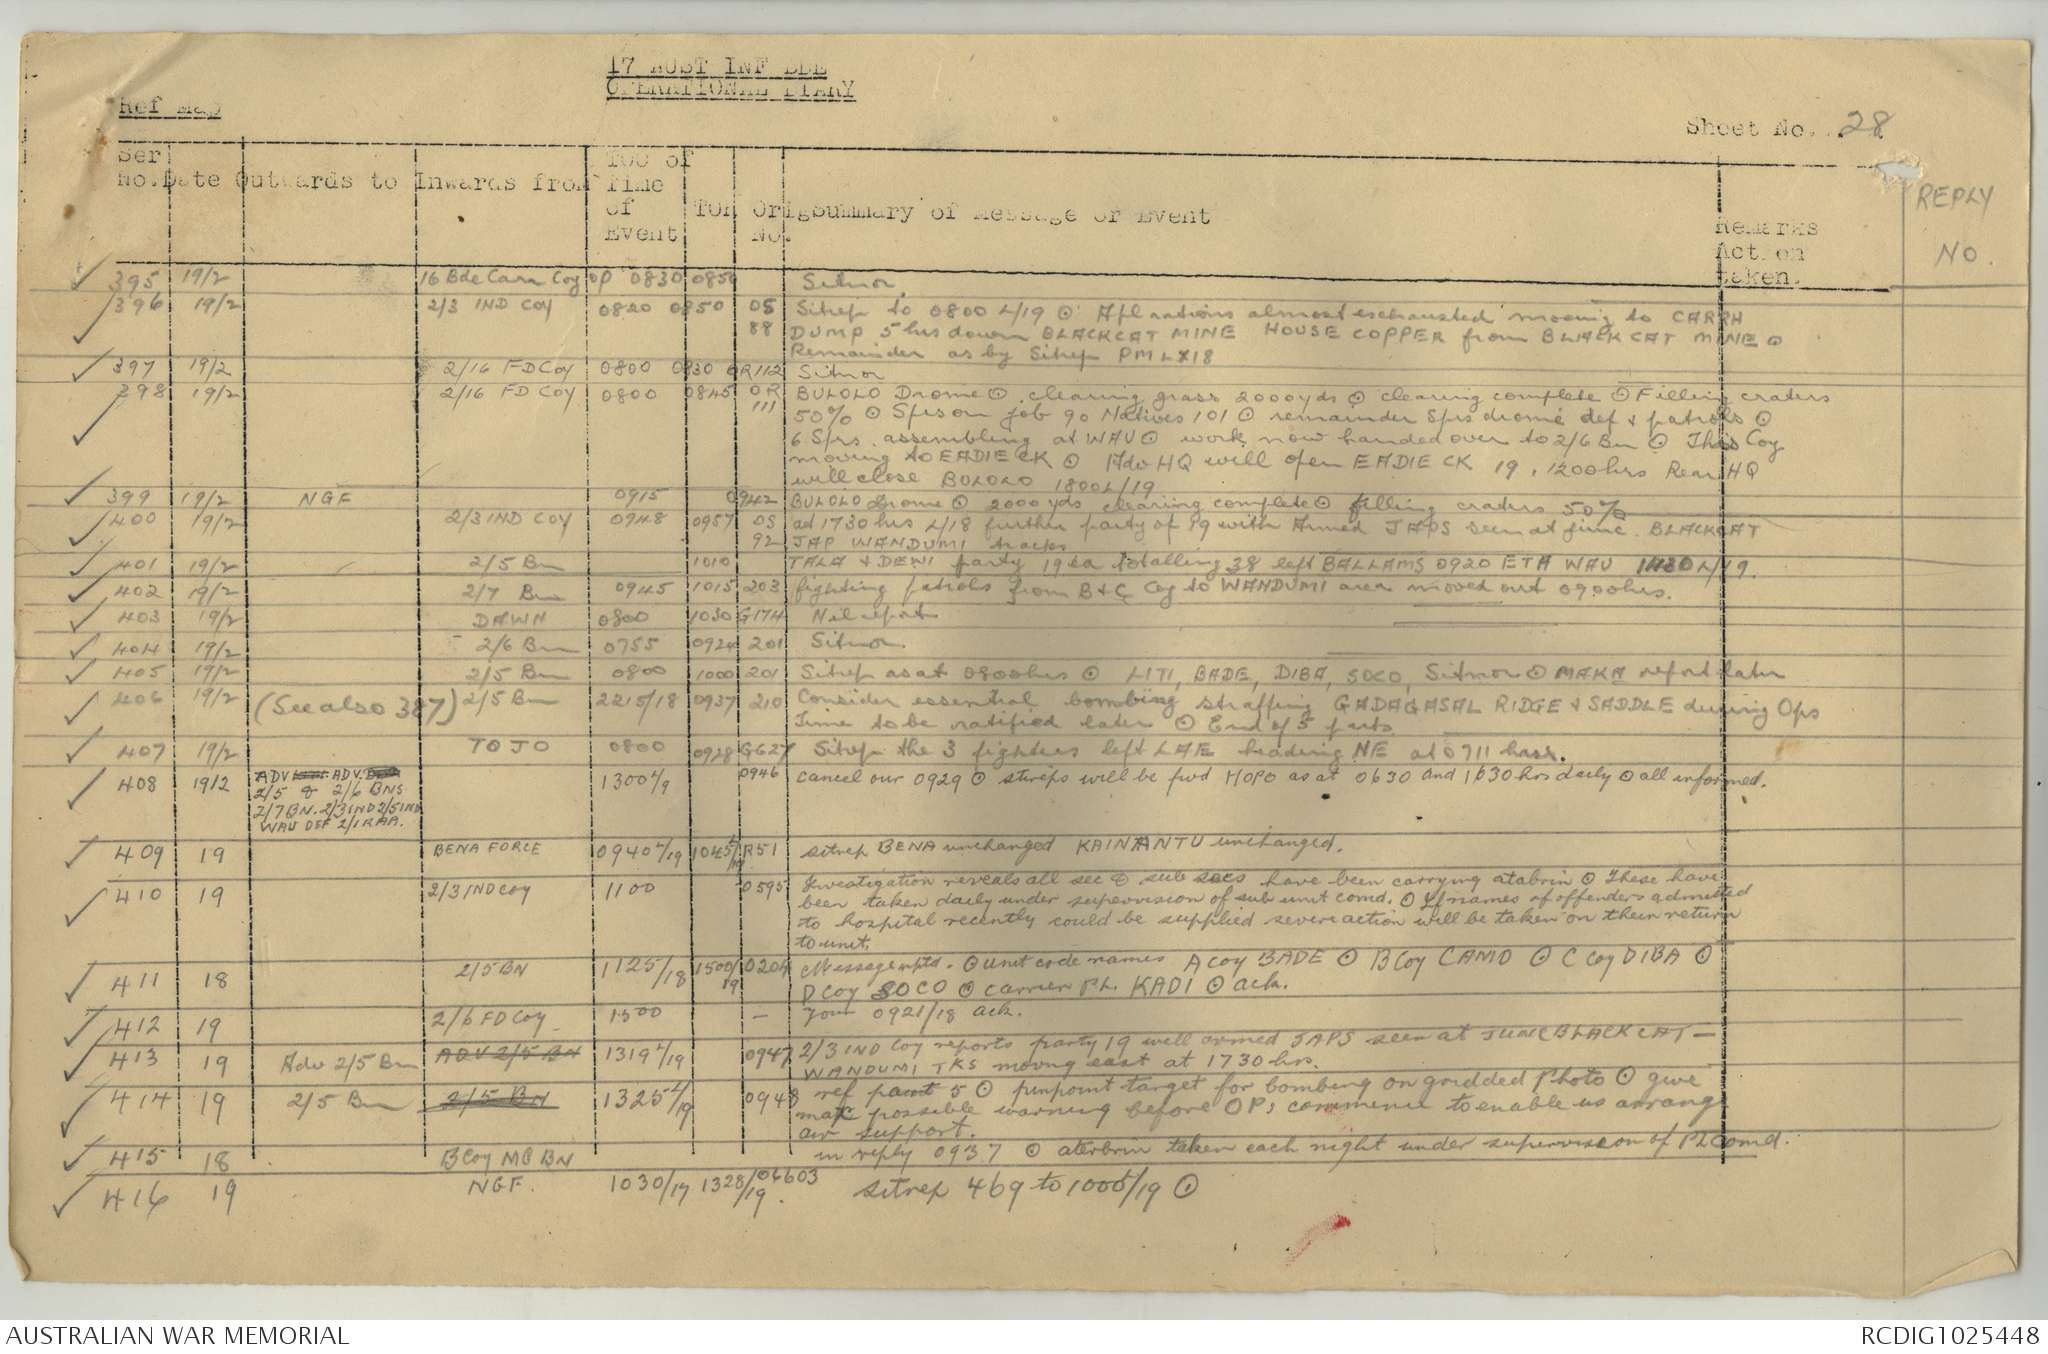 17 AUST INF BDE
OPERATIONAL DIARY
Ref Map
Sheet No. 28
Ser No. Date Outwards to Inwards from TOO of Time of Event TOR Orig No. Summary of Message or Event Remarks Action taken. REPLY NO.
395 19/2 16 Bde Carr Coy OP 0830 0850 Sitnor
396 19/2 2/3 IND COY 0820 0850 OS 88 Sitrep to 0800 L/19 ⊙ A pl rations almost exhausted moving to CARRH
DUMP 5 hrs down BLACKCAT MINE HOUSE COPPER from BLACK CAT MINE ⊙
Remainder as by Sitrep PM L/18
397 19/2 2/16 FD Coy 0800 0830 OR112 Sitnor
398 19/2 2/16 FD COY 0800 0845 OR 111 BULOLO Drome ⊙ clearing grass 2000yds ⊙ clearing complete ⊙ Filling craters
50% ⊙ Sprs on job 90 Natives 101 ⊙ remainder Sprs drome def & patrols ⊙
6 Sprs. assembling at WAU ⊙ work now handed over to 2/6 Bn ⊙ This Coy
moving to EADIE CK ⊙ Adv HQ will open EADIE CK 19, 1200hrs Rear HQ
will close BULOLO 1800L/19
399 19/2 NGF 0915 0942 BULOLO Drome ⊙ 2000 yds clearing complete ⊙ filling craters 50%
400 19/2 2/3 IND COY 0948 0957 OS 92 at 1730 hrs L/18 further party of 19 with Armed JAPS seen at junc. BLACKCAT
JAP WANDUMI tracks
401 19/2 2/5 Bn 1010 TALA & DEWI party 19 ea totalling 38 left BALLAMS 0920 ETA WAU 1430 L/19.
402 19/2 2/7 Bn 0945 1015 203 fighting patrols from B & C Coy to WANDUMI area moved out 0900hrs.
403 19/2 DAWN 0800 1030 G174 Nil report
404 19/2 2/6 Bn 0755 0924 201 Sitnor
405 19/2 2/5 Bn 0800 1000 201 Sitrep as at 0800hrs ⊙ LITI, BADE, DIBA, SOCO, Sitnor ⊙ MAKA report later
406 19/2 (See also 387) 2/5 Bn 2215/18 0937 210 Consider essential bombing straffing GADAGASAL RIDGE & SADDLE during Ops
Time to be ratified later ⊙ End of 5 parts
407 19/2 TOJO 0800 0928 G627 Sitrep the 3 fighters left LAE heading NE at 0711 hours.
408 19/2 ADV ADV. 2/5 & 2/6 BNS 2/7 BN. 2/3 IND 2/5 IND WAU DEF 2/1 RAA. 1300 L/9 0946 cancel our 0929 ⊙ sitreps will be fwd HOPO as at 0630 and 1630 hrs daily ⊙ all informed.
409 19 BENA FORCE 0940 L/19 1045 L/19 R51 sitrep BENA unchanged KAINANTU unchanged.
410 19 2/3 IND COY 1100 0595 Investigation reveals all sec & sub secs have been carrying atabrin ⊙ These have
been taken daily under supervision of sub unit comd. ⊙ If names of offenders admitted
to hospital recently could be supplied severe action will be taken on their return
to unit.
411 18 2/5 BN 1125/18 1500/19 0204 Message mptd. ⊙ unit code names A Coy BADE ⊙ B Coy CAMO ⊙ C Coy DIBA ⊙
D Coy SOCO ⊙ carrier PL. KADI ⊙ ack.
412 19 2/6 FD Coy 1500 — Your 0921/18 ack.
413 19 Adv 2/5 Bn ADV 2/5 BN 1319 L/19 0947 2/3 IND Coy reports party 19 well armed JAPS seen at JUNC BLACK CAT —
WANDUMI TKS moving east at 1730 hrs.
414 19 2/5 Bn 2/5 BN 1325 L/19 0948 ref part 5 ⊙ pinpoint target for bombing on gridded Photo ⊙ give
max possible warning before OPs commence to enable us arrange
air support.
415 18 B Coy MG BN in reply 0937 ⊙ aterbrin taken each night under supervision of PL Comd.
416 19 NGF. 1030/17 1328/19 06603 sitrep 469 to 1000 L/19 ⊙
AUSTRALIAN WAR MEMORIAL
RCDIG1025448